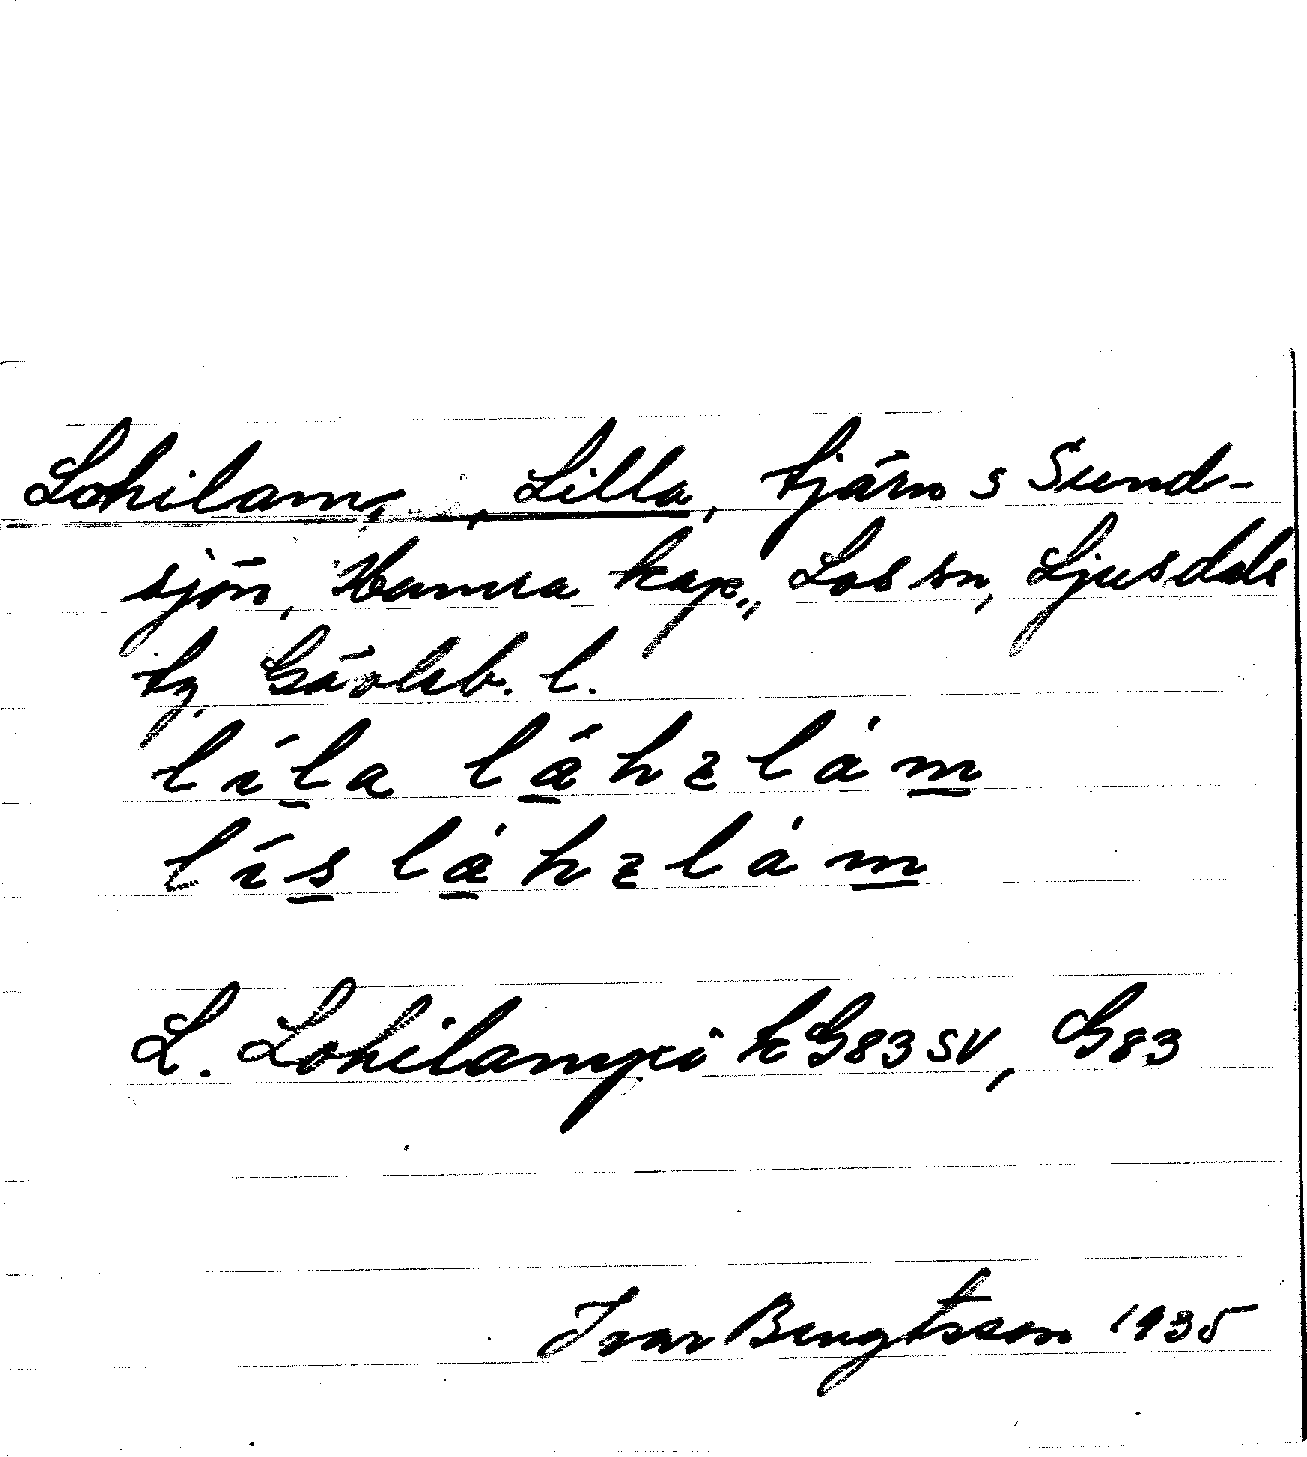 Lohilam, , Lilla, tjärn s Sund-
sjön, Hamra kap., Los sn, Ljusdals
tg, Gävleb. l.
L. Lohilampi k G83 SV, G83
Ivar Bengtsson 1935